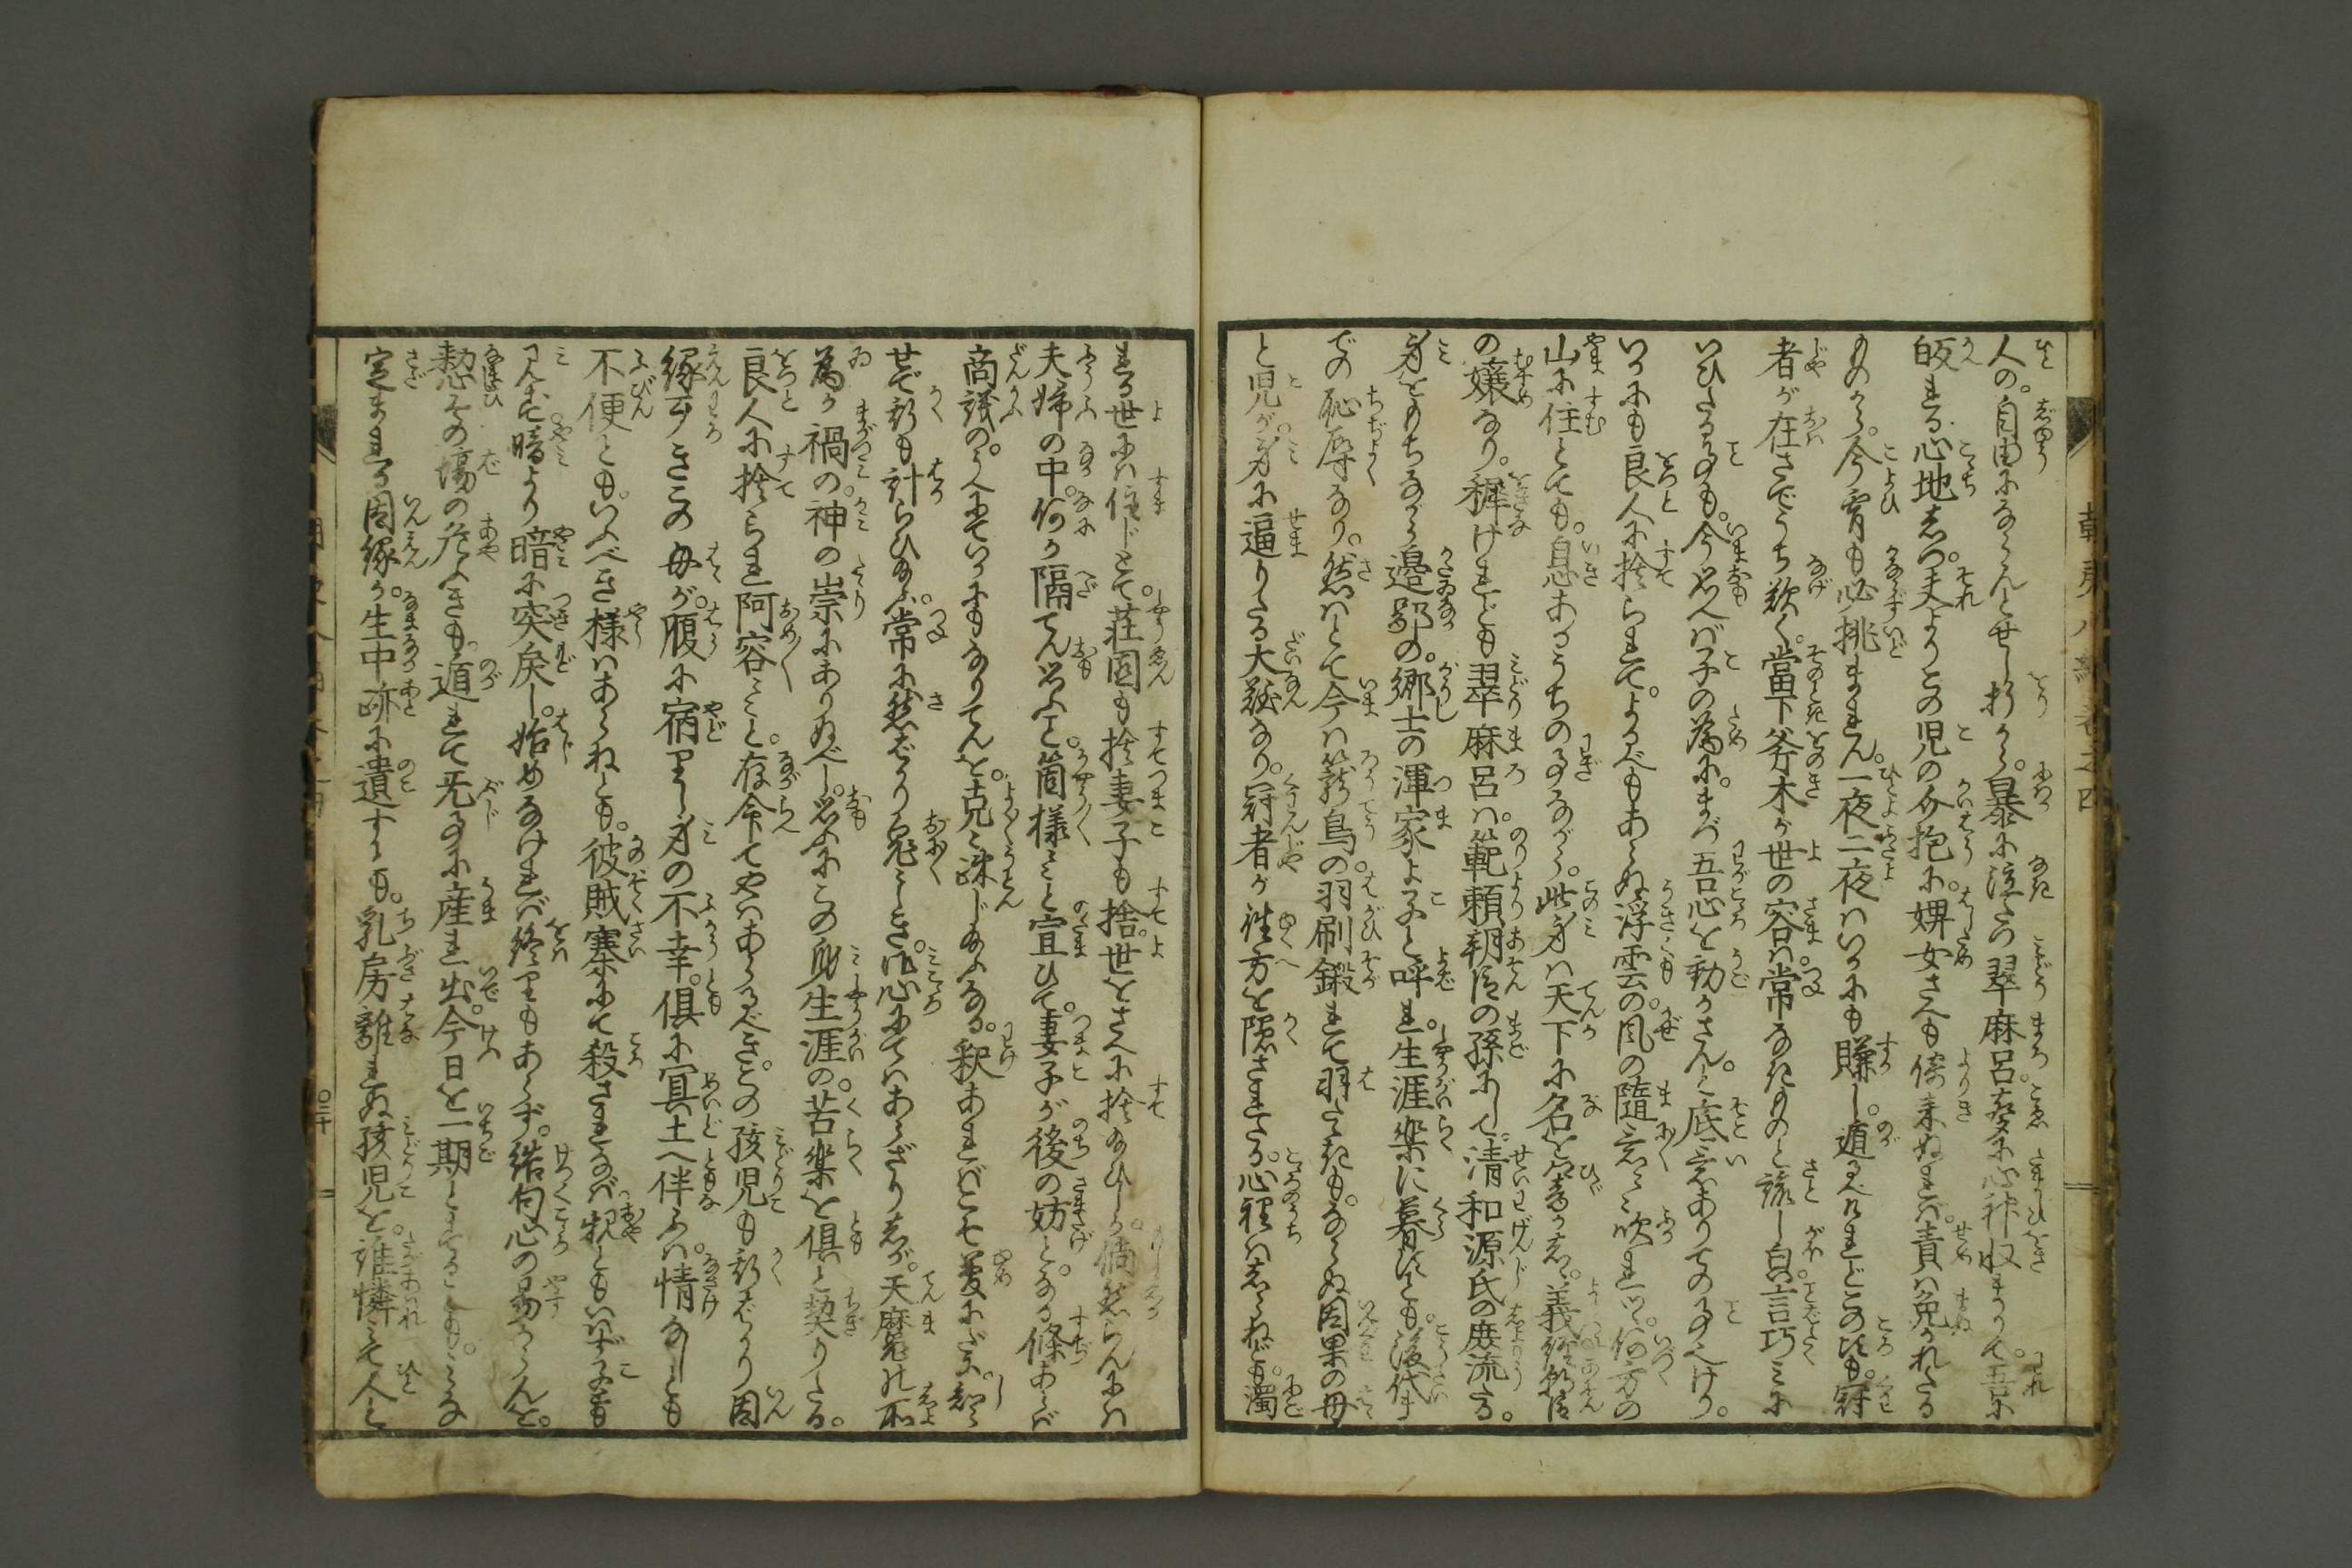 人の。自由にならんとせし折から。暴に泣たつ翠麻呂。声に心神収まりて。吾に
皈れる心地しつ。夫よりこの児の介抱に。婢女さへも倚来ぬれば。責は免かれたる
ものから。今宵も必挑まれん。一夜二夜はいかにも賺し。遁るべけれどこの比も。冠
者が在さでうち歎く。當下斧木が世の容は。常なきものと諭し㒵。言巧みに
いひたる事も。今思へば子の為に。まづ吾心を動かさん。と底意ありての事なりけり。
いかにも良人に捨られて。よるべもあらぬ浮雲の。風の隨意々々吹れつゝ。何方の
山に住とても。息あるうちの事ながら。此身は天下に名を響かし。義経朝臣
の嬢なり。穉けれども翠麻呂は。範頼朝臣の孫にして。清和源氏の庶流たる。
身をもちながら邉鄙の。郷士の渾家よ子と呼れ。生涯楽に暮すとも。後代ま
での恥辱なり。然はとて今は篭鳥の。羽刷鍛れて翔たきも。ならぬ因果の母
と児が。身に逼りたる大難なり。冠者が徃方を隠されたる。心裡はしらねども。濁
れる世には住じとて。荘園も捨妻子も捨。世をさへに捨給ひしか。倘然らんには
夫婦の中。何か隔てん思ふと。箇様々々と宣ひて。妻子が後の妨と。なる條あらば
商議の。うへにていかにもなりてんを。克々疎じ給ふなる。釈あればこそ夢にだに。知ら
せで斯も計らひ給ふ。常に然ばかり鬼々しき。御心にてはあらざりしが。天魔の所
為か禍の。神の祟にありぬべし。思ふにこの身生涯の。苦樂を倶と契りたる。
良人に捨られ阿容々々と。存命てやはあるべき。この孩児も斯ばかり因
縁歹きこの母が。腹に宿りし身の不幸。倶に冥土へ伴ふは。情なしとも
不便とも。いふべき様はあらねとも。彼賊寨にて殺されなば。親ともいはず子とも
見ず。暗より暗に突戻し。始めなければ終りもあらず。結句心の易からんを。
憖その場の危ふきも。遁れて无事に産れ出。今日を一期とすることも。みな
定まれる因縁か。生中跡に遺すとも。乳房離れぬ孩児を。誰憐みて人と